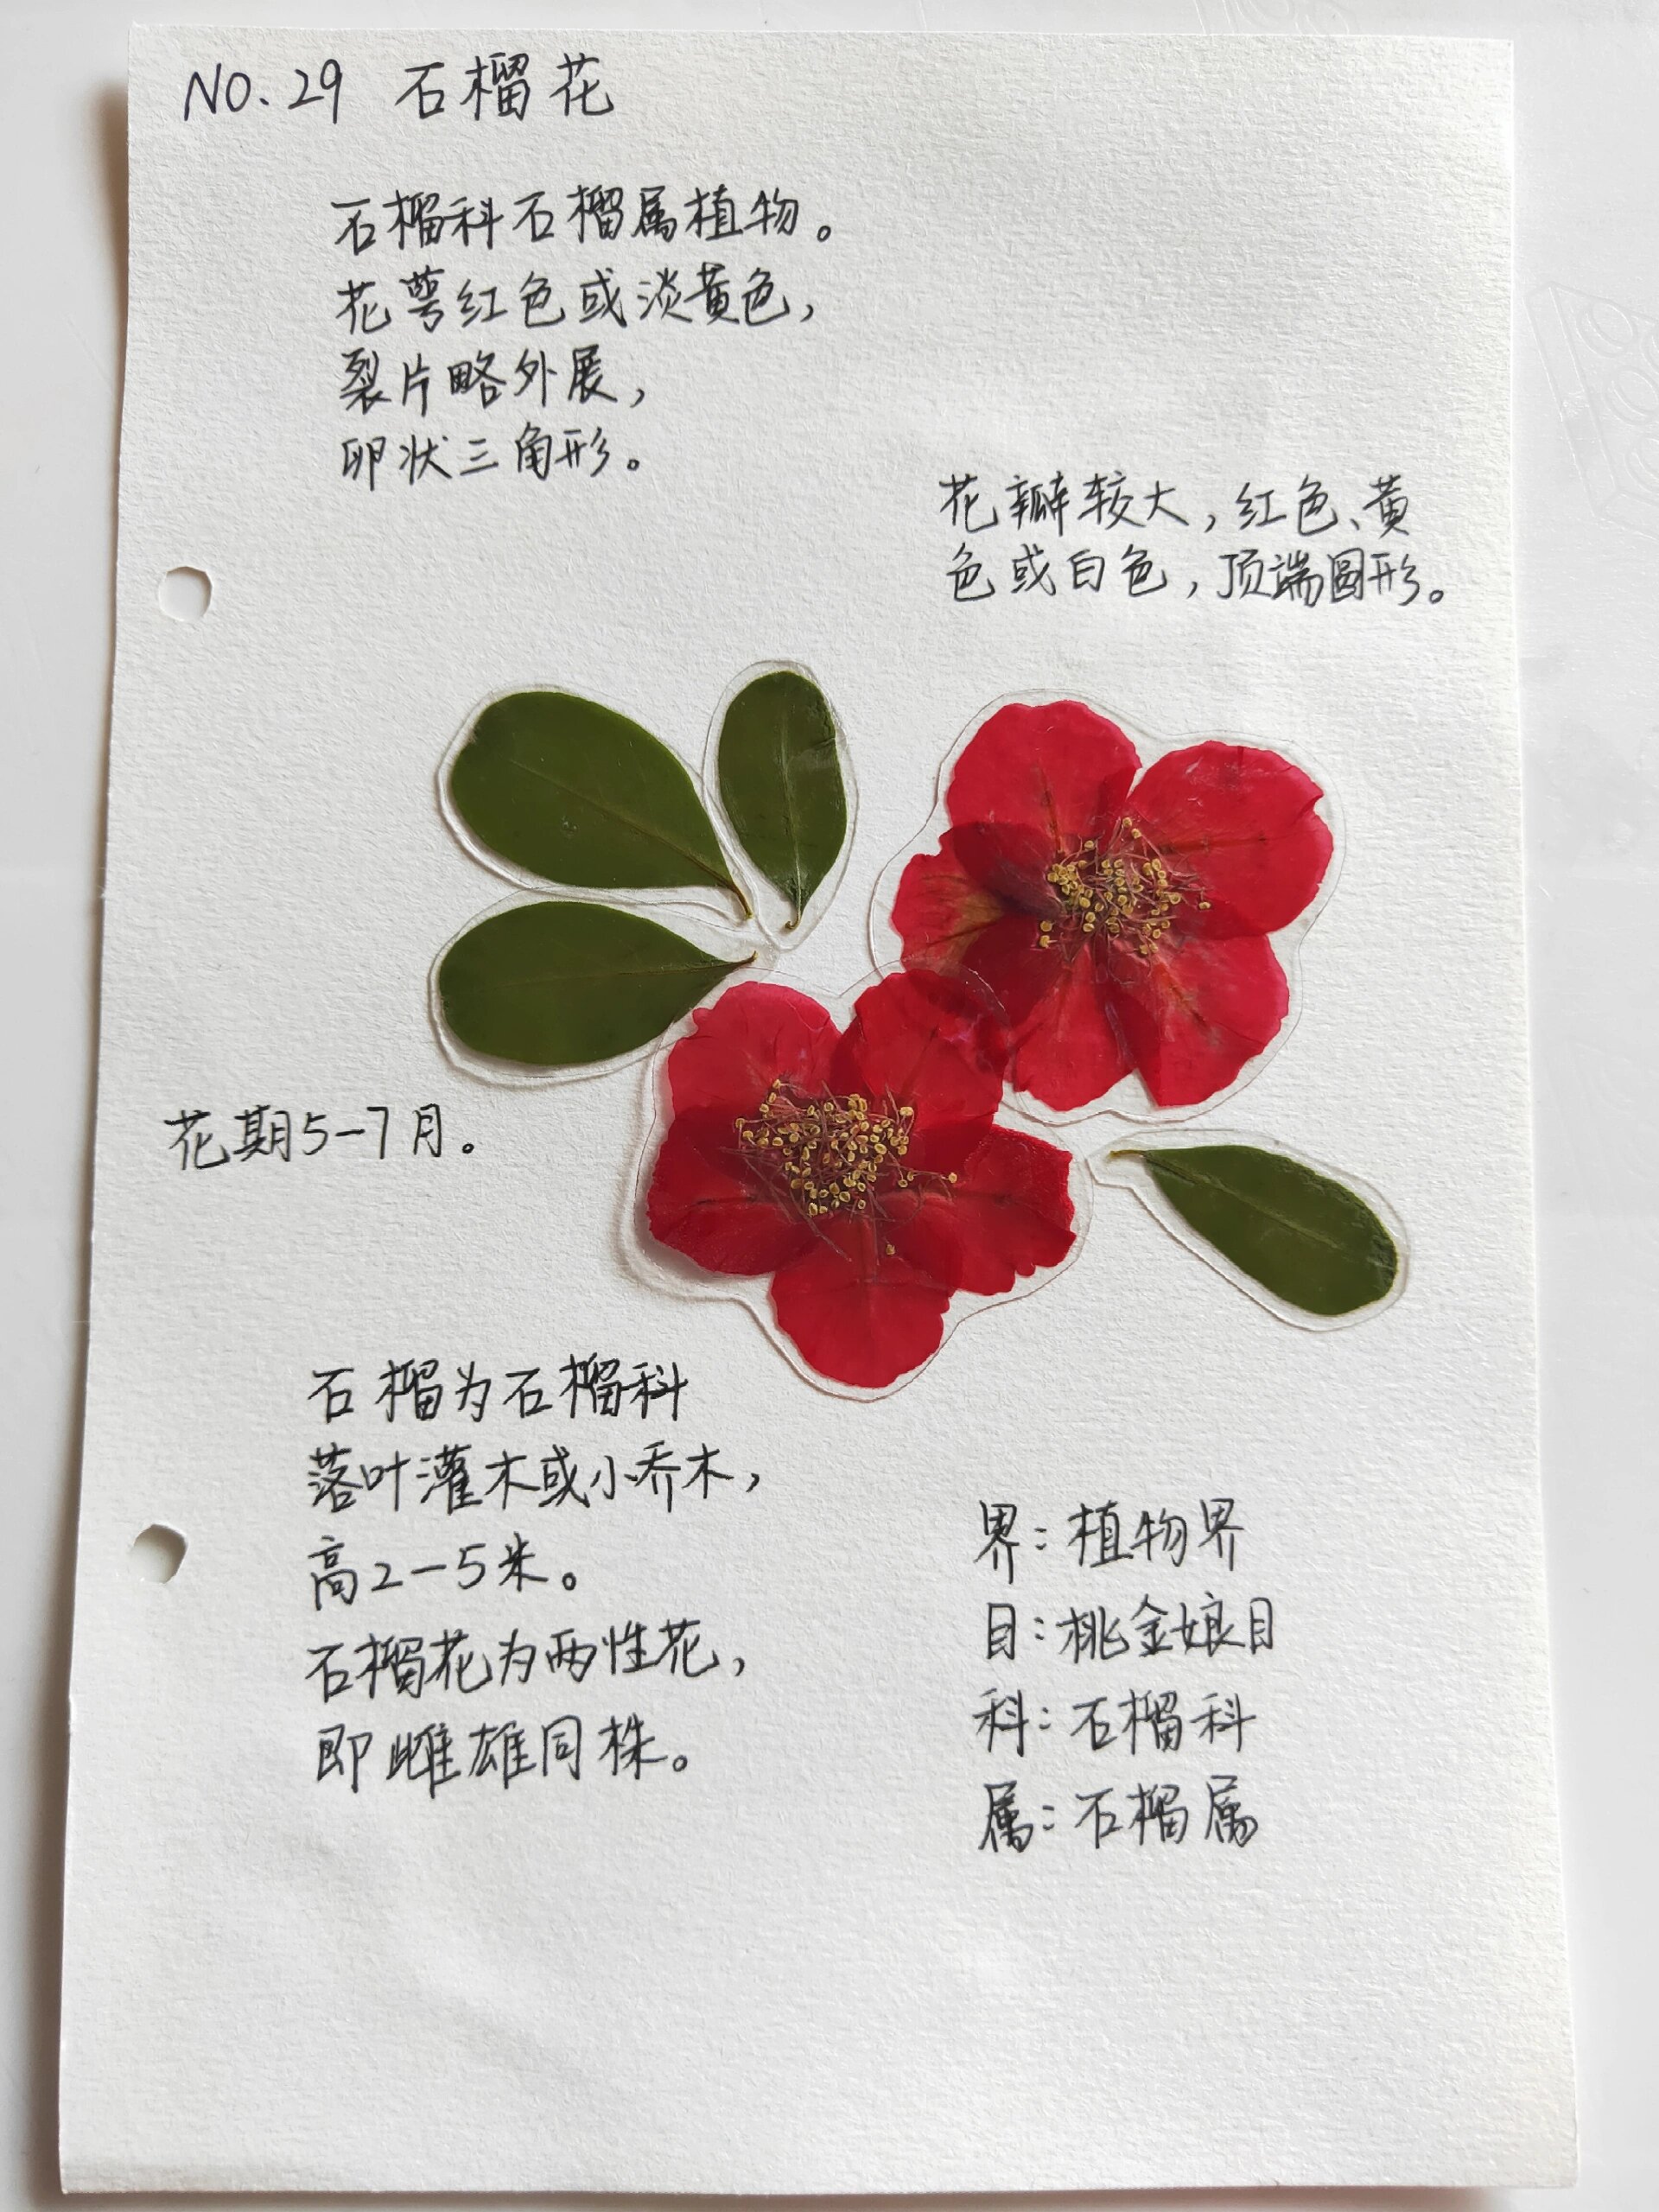 NO.29 石榴花
石榴科石榴属植物。
花萼红色或淡黄色,
裂片略外展,
卵状三角形。
花瓣较大,红色、黄
色或白色,顶端圆形。
花期5-7月。
石榴为石榴科
落叶灌木或小乔木,
高2-5米。
石榴花为两性花,
即雌雄同株。
界:植物界
目:桃金娘目
科:石榴科
属:石榴属